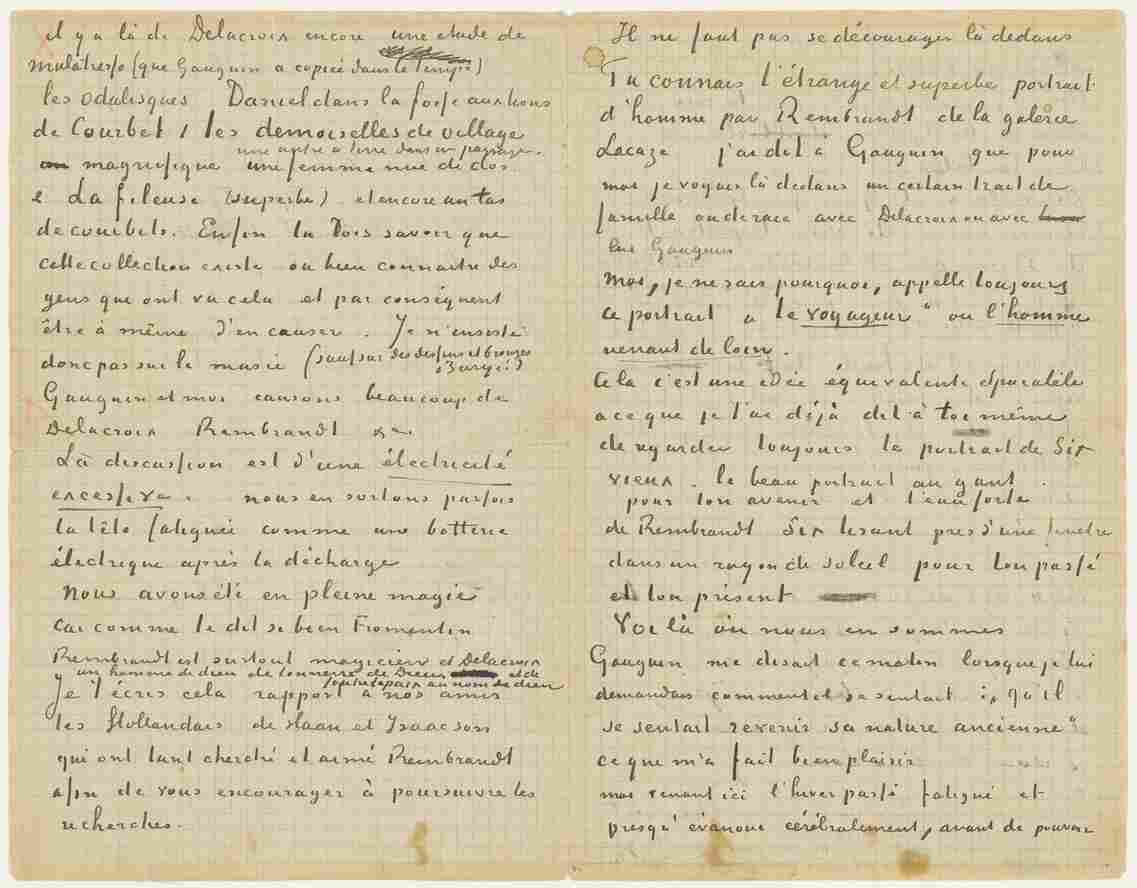 il y a là de Delacroix encore une etude de
mulâtresse (que Gauguin a copiée dans le temps)
les odalisques Daniel dans la fosse aux lions
de Courbet 1 les demoiselles de village
une autre à terre dans un paysage.
magnifique une femme nue de dos
2 La fileuse (superbe) et encore un tas
de courbets. Enfin tu dois savoir que
cette collection existe ou bien connaitre des
gens que ont vu cela et par conséquent
être à même d'en causer. Je n'insiste
donc pas sur le musée (sauf sur des dessins et bronzes
Barye!)
Gauguin et moi causons beaucoup de
Delacroix Rembrandt &c.
La discussion est d'une électricité
excessive. nous en sortons parfois
la tête fatiguée comme une batterie
électrique après la décharge
Nous avons été en pleine magie
car comme le dit si bien Fromentin
Rembrandt est surtout magicien et Delacroix
un homme de dieu de tonnerre de Dieu et de
foutre la paix au nom de dieu
Je t'écris cela rapport à nos amis
les Hollandais de Haan et Isaacson
qui ont tant cherché et aimé Rembrandt
afin de vous encourager à poursuivre les
recherches.
Il ne faut pas se décourager là dedans
Tu connais l'étrange et superbe portrait
d'homme par Rembrandt de la galerie
Lacaze j'ai dit à Gauguin que pour
moi je voyais là dedans un certain trait de
famille ou de race avec Delacroix ou avec
lui Gauguin
Moi, je ne sais pourquoi, appelle toujours
ce portrait "le voyageur" ou l'homme
venant de loin.
Cela c'est une idée équivalente & parallèle
a ce que je t'ai déjà dit à toi même
de regarder toujours le portrait de Six
vieux. le beau portrait au gant.
pour ton avenir et l'eau forte
de Rembrandt Six lisant près d'une fenêtre
dans un rayon de soleil pour ton passé
et ton présent
Voilà où nous en sommes
Gauguin me disait ce matin lorsque je lui
demandais comment il se sentait "qu'il
se sentait revenir sa nature ancienne"
ce que m'a fait bien plaisir
moi venant ici l'hiver passé fatigué et
presqu'évanoui cérébralement, avant de pouvoir